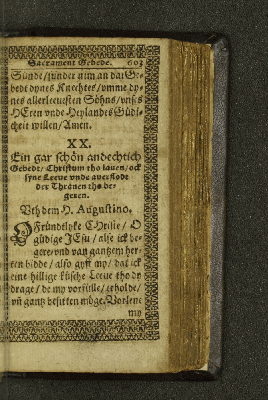 Sacrament Gebede. 603
Sünde / sunder nim an dat Ge-
bedt dynes Knechtes / vmme dy-
nes allerleuesten Söhns / vnses
HEren vnde Heylandes Güdi-
cheit willen / Amen.
XX.
Ein gar schön andechtich
Gebedt / Christum tho lauen / ock
syne Leeue vnde auerflodt
der Thränen tho be-
geren.
Vth dem H. Augustino.
O Fründtlyke CHriste / O
güdige JEsu / alse ick be-
gere vnd van gantzem her-
ten bidde / also gyff my / dat ick
eine hillige küsche Leeue tho dy
drage / de my voruülle / erholde /
vñ gantz besitten möge. Vorlene
my